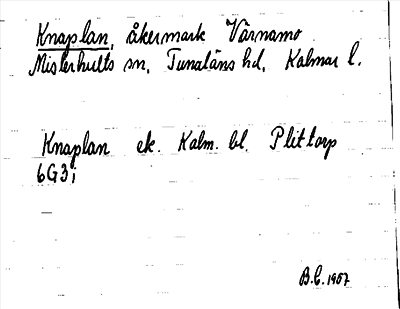 Knaplan, åkermark Värnamo
Misterhults sn, Tunaläns hd, Kalmar l.
Knaplan ek. Kalm. bl. Plittorp
6G3i
B.C. 1957